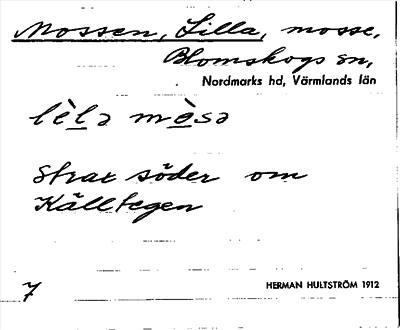 Mossen, Lilla, mosse,
Blomskogs sn,
Nordmarks hd, Värmlands län
lè̲lə mè̲sə
Strax söder om
Källtegen
7
HERMAN HULTSTRÖM 1912